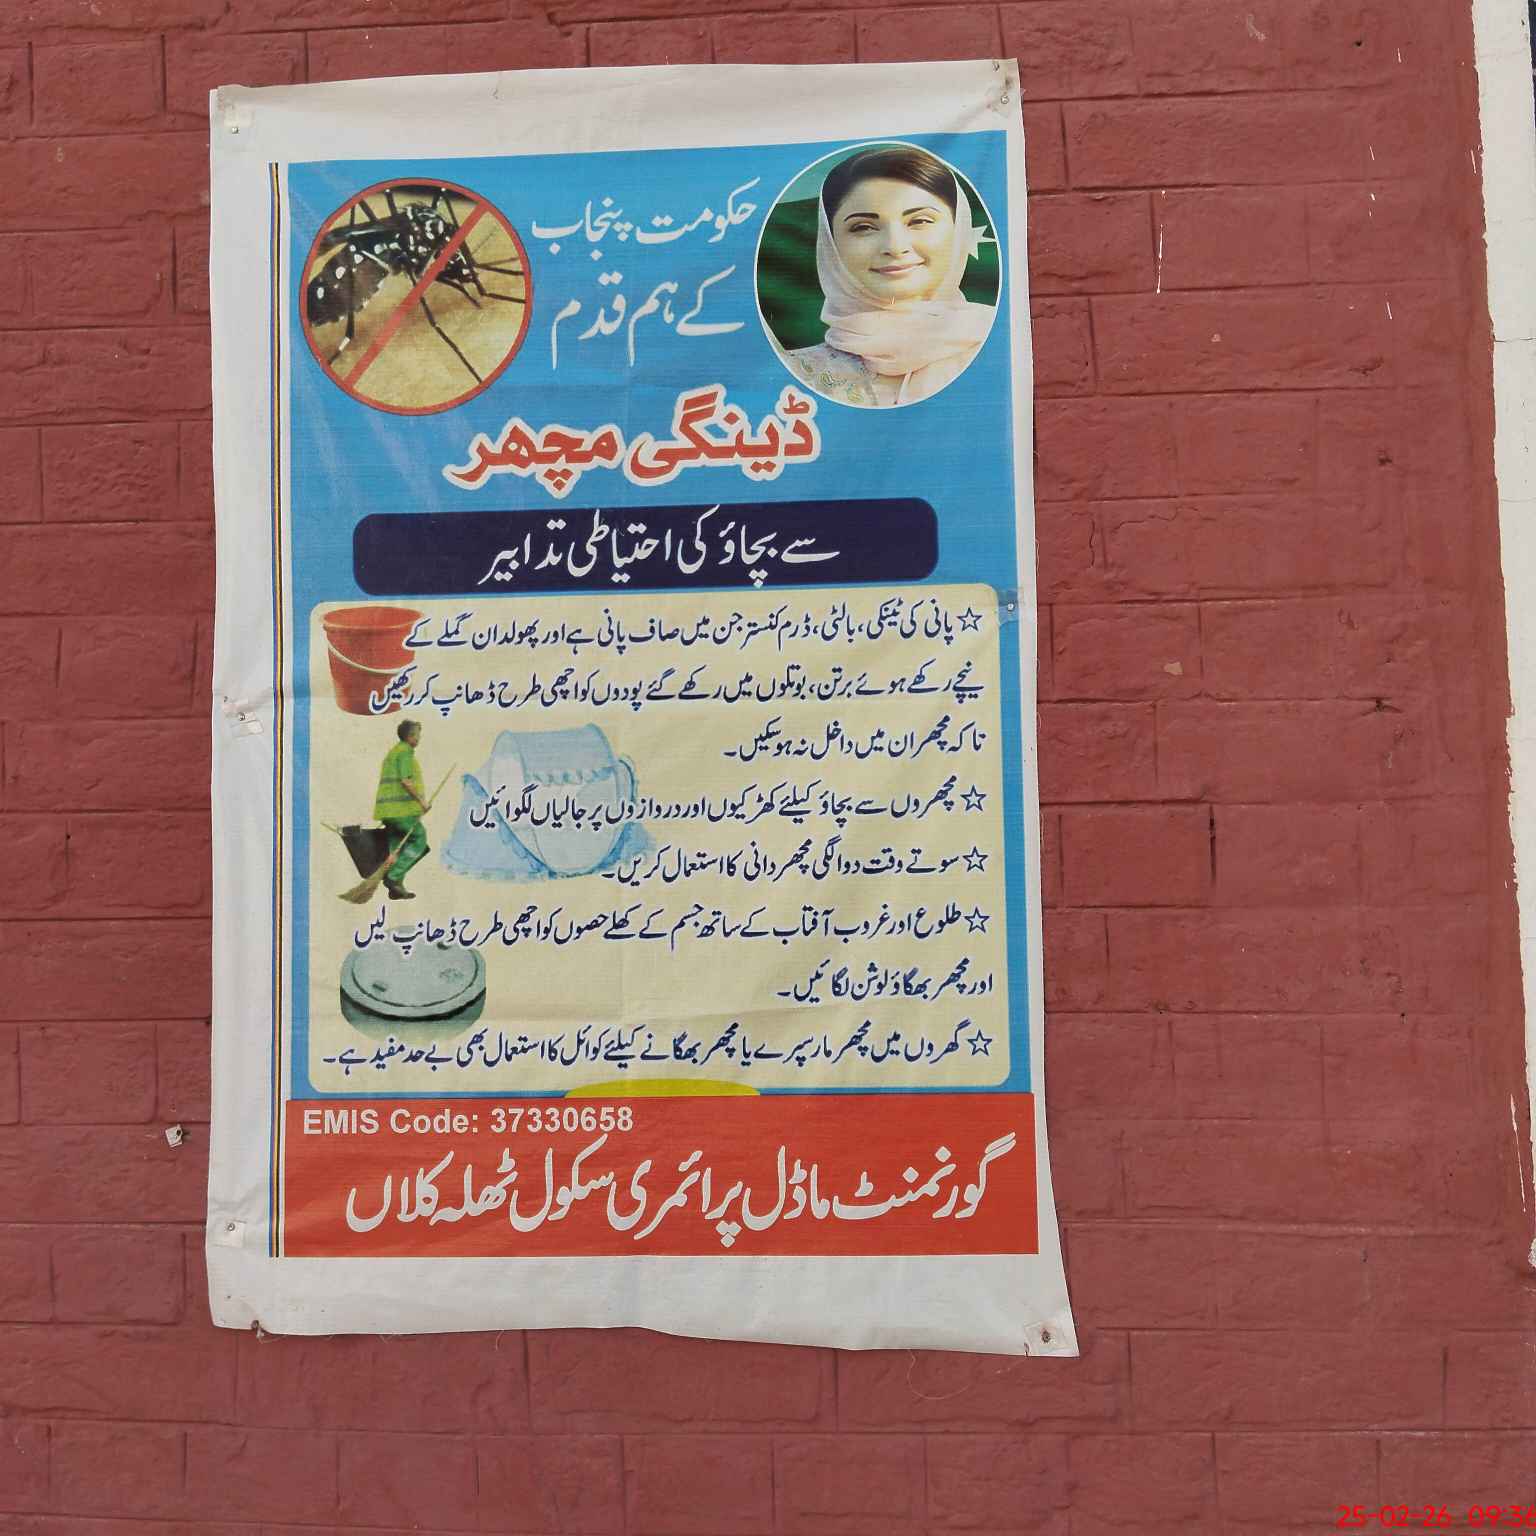 حکومت پنجاب
کے ہم قدم
ڈینگی مچھر
سے بچاؤ کی احتیاطی تدابیر
☆ پانی کی ٹینکی، بالٹی، ڈرم کنستر جن میں صاف پانی ہے اور پھولدان گملے کے
نیچے رکھے ہوئے برتن، بوتلوں میں رکھے گئے پودوں کو اچھی طرح ڈھانپ کر رکھیں
تاکہ مچھر ان میں داخل نہ ہو سکیں۔
☆ مچھروں سے بچاؤ کیلئے کھڑکیوں اور دروازوں پر جالیاں لگوائیں
☆ سوتے وقت دوا لگی مچھر دانی کا استعمال کریں۔
☆ طلوع اور غروب آفتاب کے ساتھ جسم کے کھلے حصوں کو اچھی طرح ڈھانپ لیں
اور مچھر بھگاؤ لوشن لگائیں۔
☆ گھروں میں مچھر مار سپرے یا مچھر بھگانے کیلئے کوائل کا استعمال بھی بے حد مفید ہے۔
EMIS Code: 37330658
گورنمنٹ ماڈل پرائمری سکول ٹھلہ کلاں
25-02-26 09:36